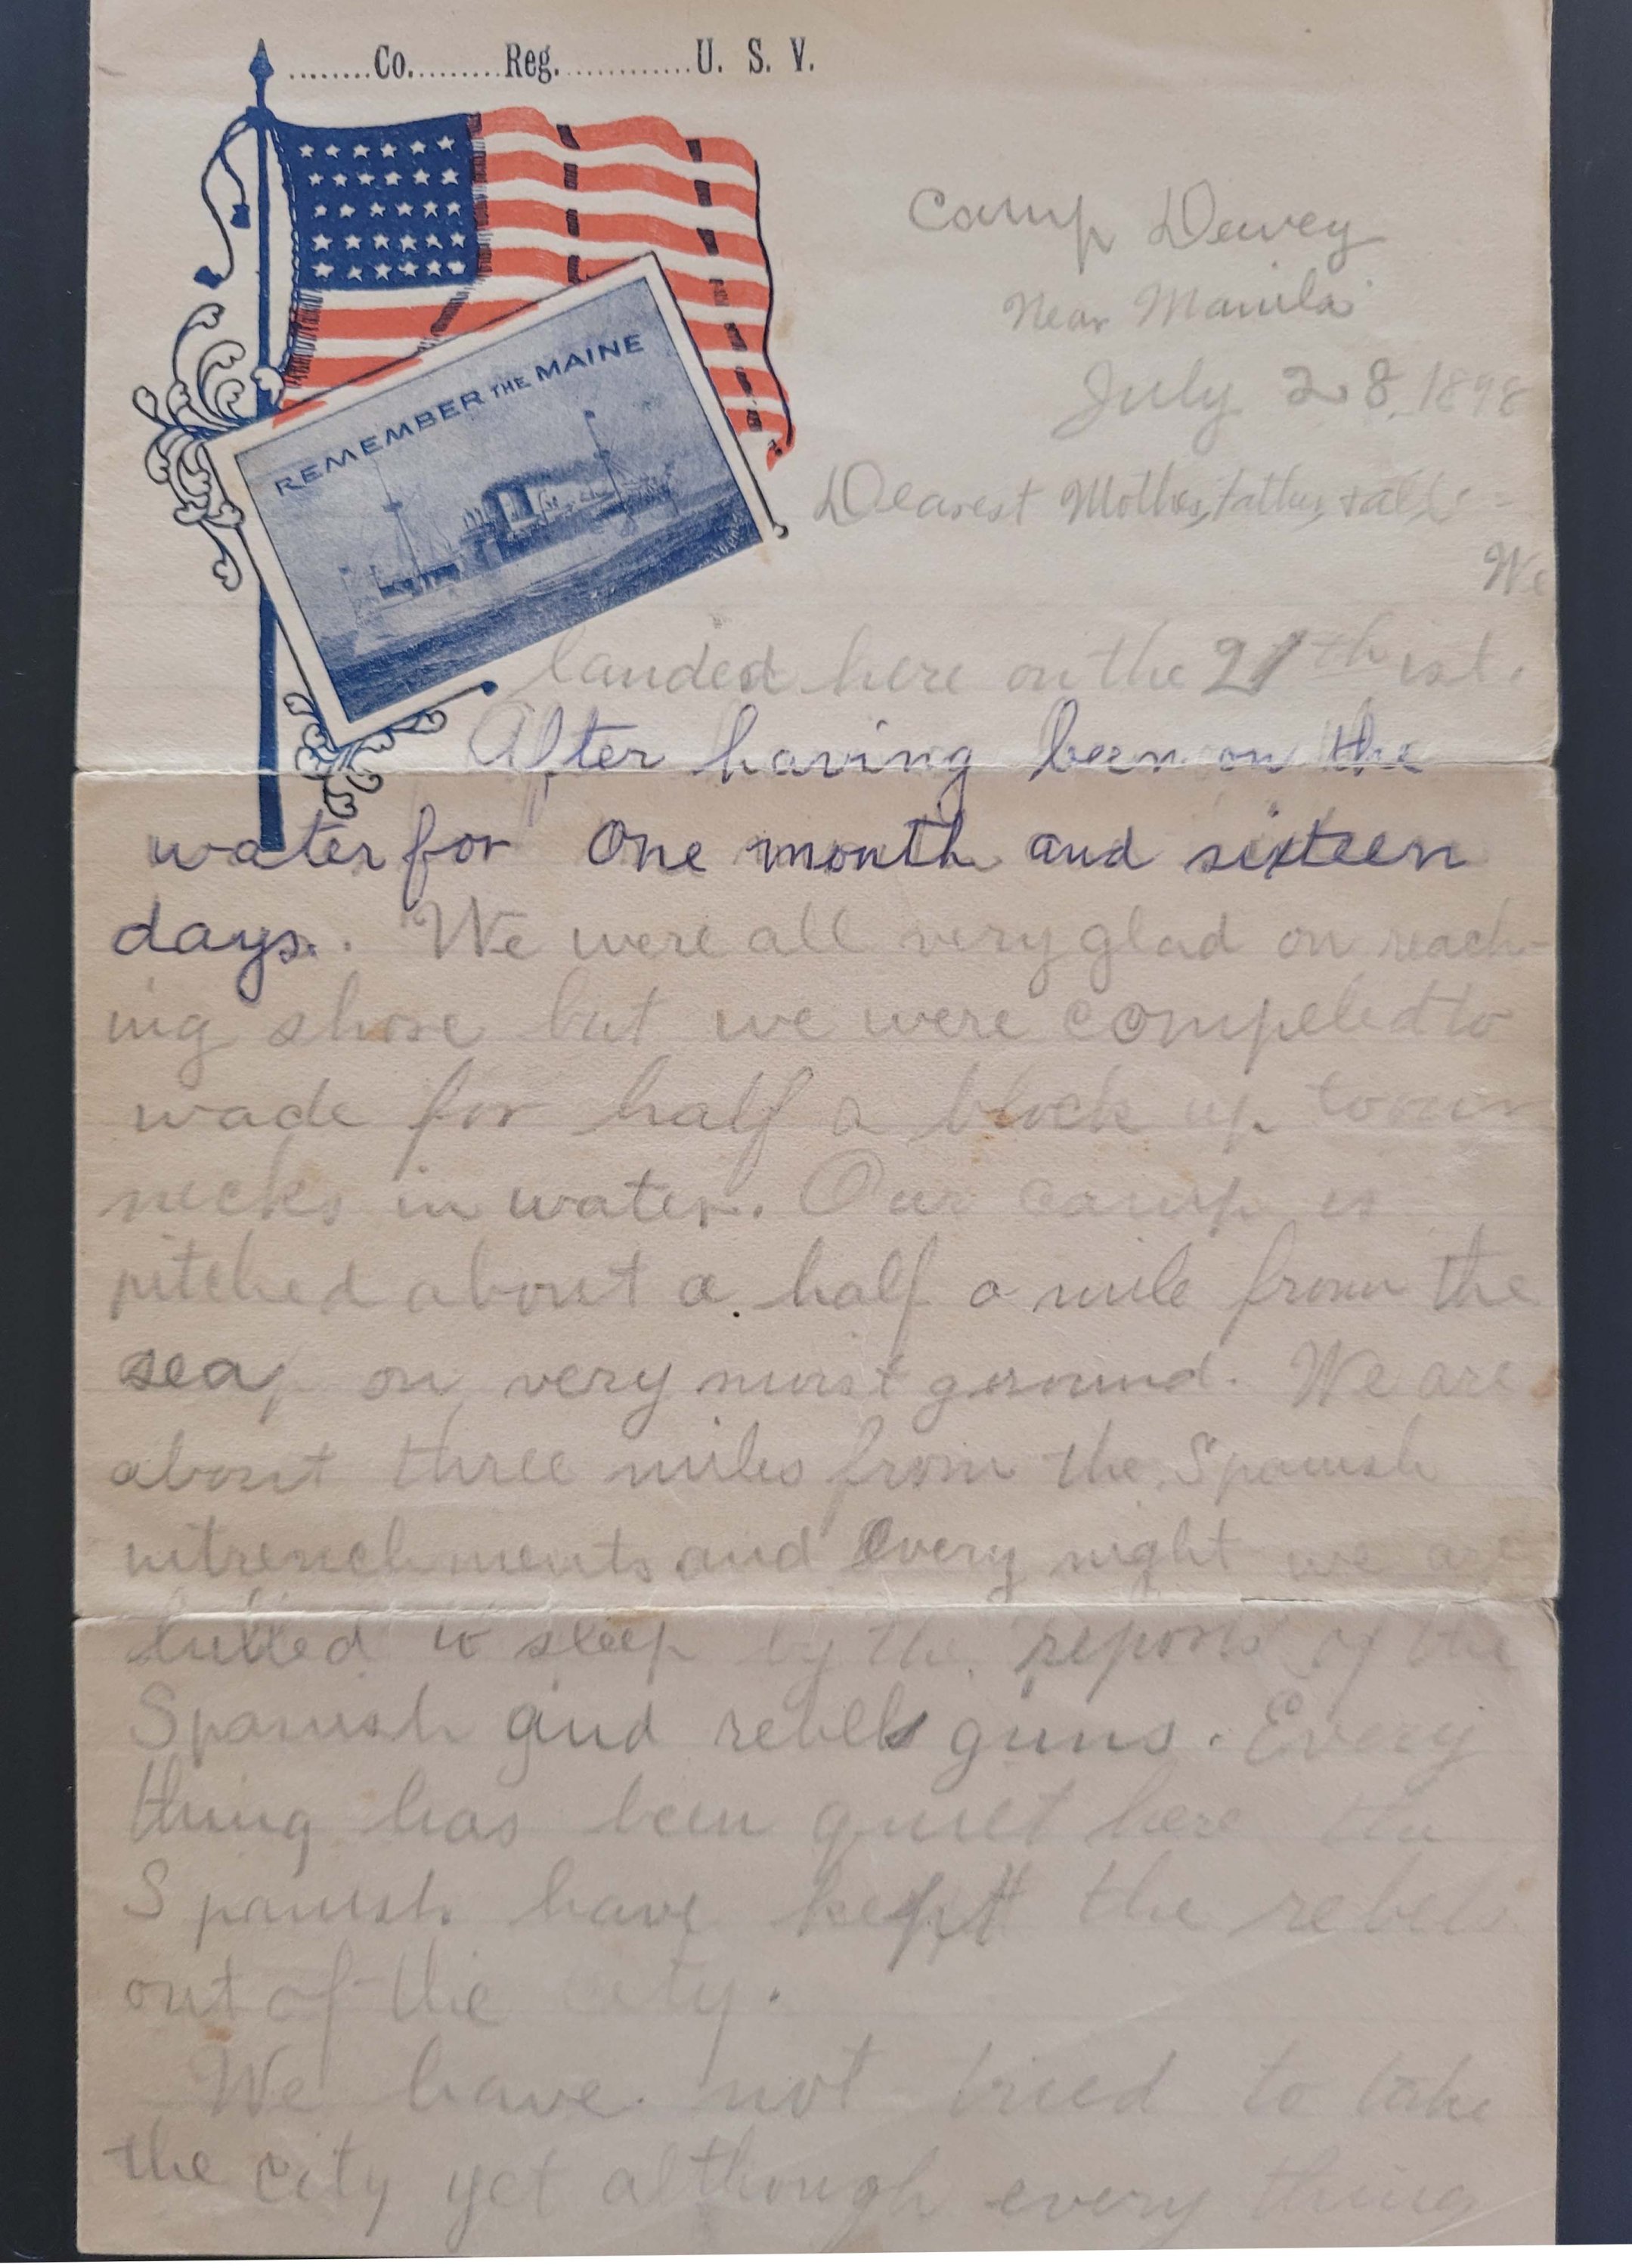 ........Co.........Reg.............U. S. V.
REMEMBER THE MAINE
Camp Dewey
Near Manila
July 28, 1898
Dearest Mother, father, & all:-
We
landed here on the 21th ist.
After having been on the
water for One month and sixteen
days. We were all very glad on reach-
ing shore but we were compeled to
wade for half a block up to our
necks in water. Our camp is
pitched about a half a mile from the
sea, on very moist ground. We are
about three miles from the Spanish
intrenchments and Every night we are
lulled to sleep by the reports of the
Spanish and rebels guns. Every
thing has been quiet here the
Spanish have kept the rebels
out of the city.
We have not tried to take
the city yet although every thing